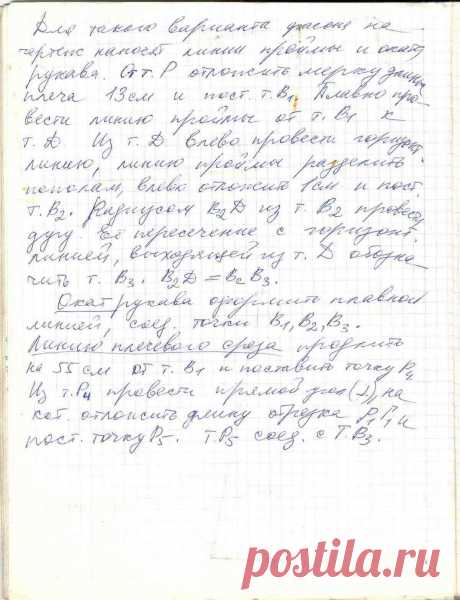 Для такого варианта фасона на
чертеж наносят линии проймы и оката
рукава. От т. Р отложить мерку длины
плеча 13 см и пост. т. В1. Плавно про-
вести линию проймы от т. В1 к
т. Д. Из т. Д влево провести горизонт.
линию, линию проймы разделить
пополам, влево отложить 1 см и пост.
т. В2. Радиусом В2Д из т. В2 провести
дугу. Её пересечение с горизонт.
линией, выходящей из т. Д обозна-
чить т. В3. В2Д = В2В3.
Окат рукава оформить плавной
линией, соед. точки В1, В2, В3.
Линию плечевого среза продлить
на 55 см от т. В1 и поставить точку Р4
Из т. Р4 провести прямой угол (⊥), на
кот. отложить длину отрезка Р1Г1 и
пост. точку Р5. Т. Р5 соед. с Т. В3.
postila.ru